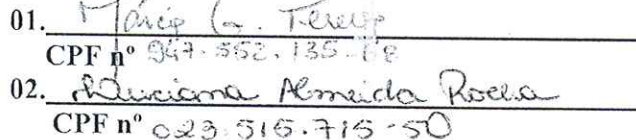 01. Márcio G.
CPF nº 947.552.135-68
02. Luciana Almeida Rocha
CPF nº 023.515.715-50